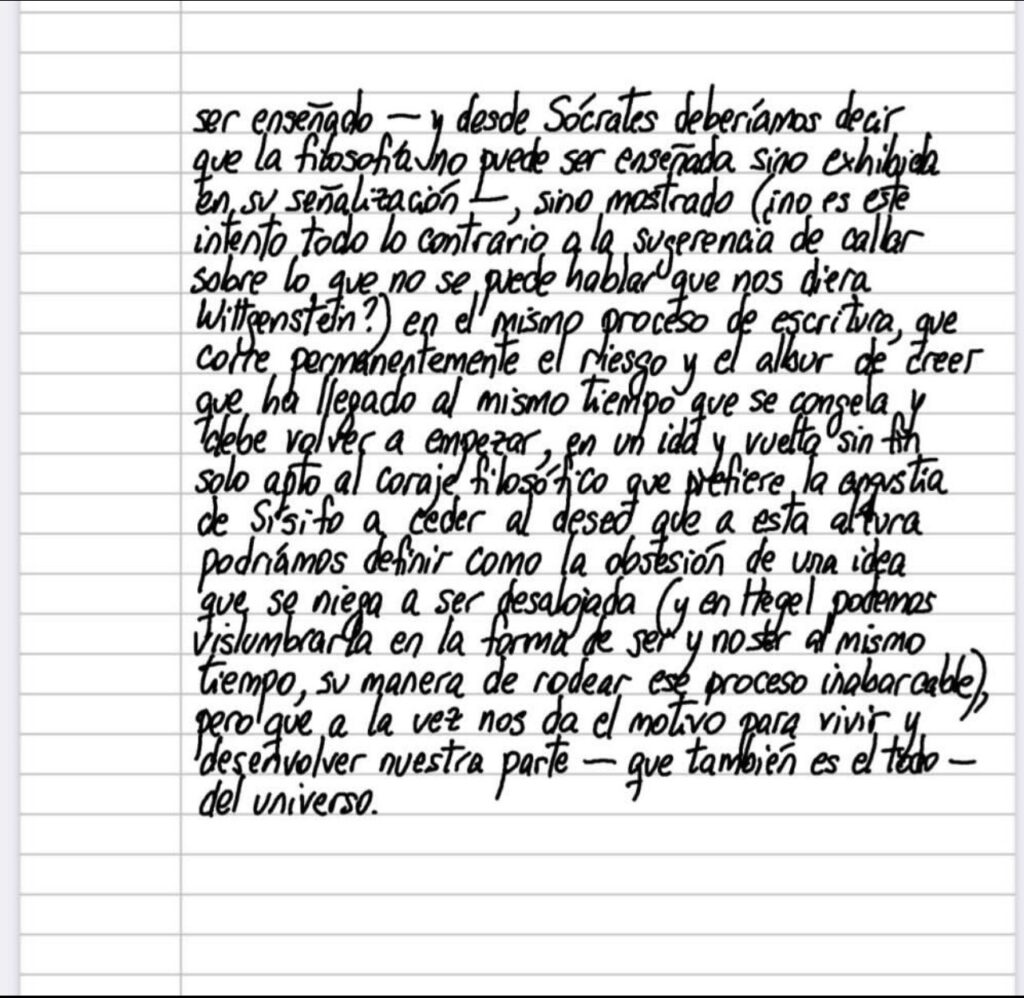 ser enseñado — y desde Sócrates deberíamos decir
que la filosofía no puede ser enseñada sino exhibida
en su señalización —, sino mostrado (¿no es este
intento todo lo contrario a la sugerencia de callar
sobre lo que no se puede hablar que nos diera
Wittgenstein?) en el mismo proceso de escritura, que
corre permanentemente el riesgo y el albur de creer
que ha llegado al mismo tiempo que se congela y
debe volver a empezar, en un ida y vuelta sin fin
solo apto al coraje filosófico que prefiere la angustia
de Sísifo a ceder al deseo que a esta altura
podríamos definir como la obsesión de una idea
que se niega a ser desalojada (y en Hegel podemos
vislumbrarla en la forma de ser y no ser al mismo
tiempo, su manera de rodear ese proceso inabarcable),
pero que a la vez nos da el motivo para vivir y
desenvolver nuestra parte — que también es el todo —
del universo.